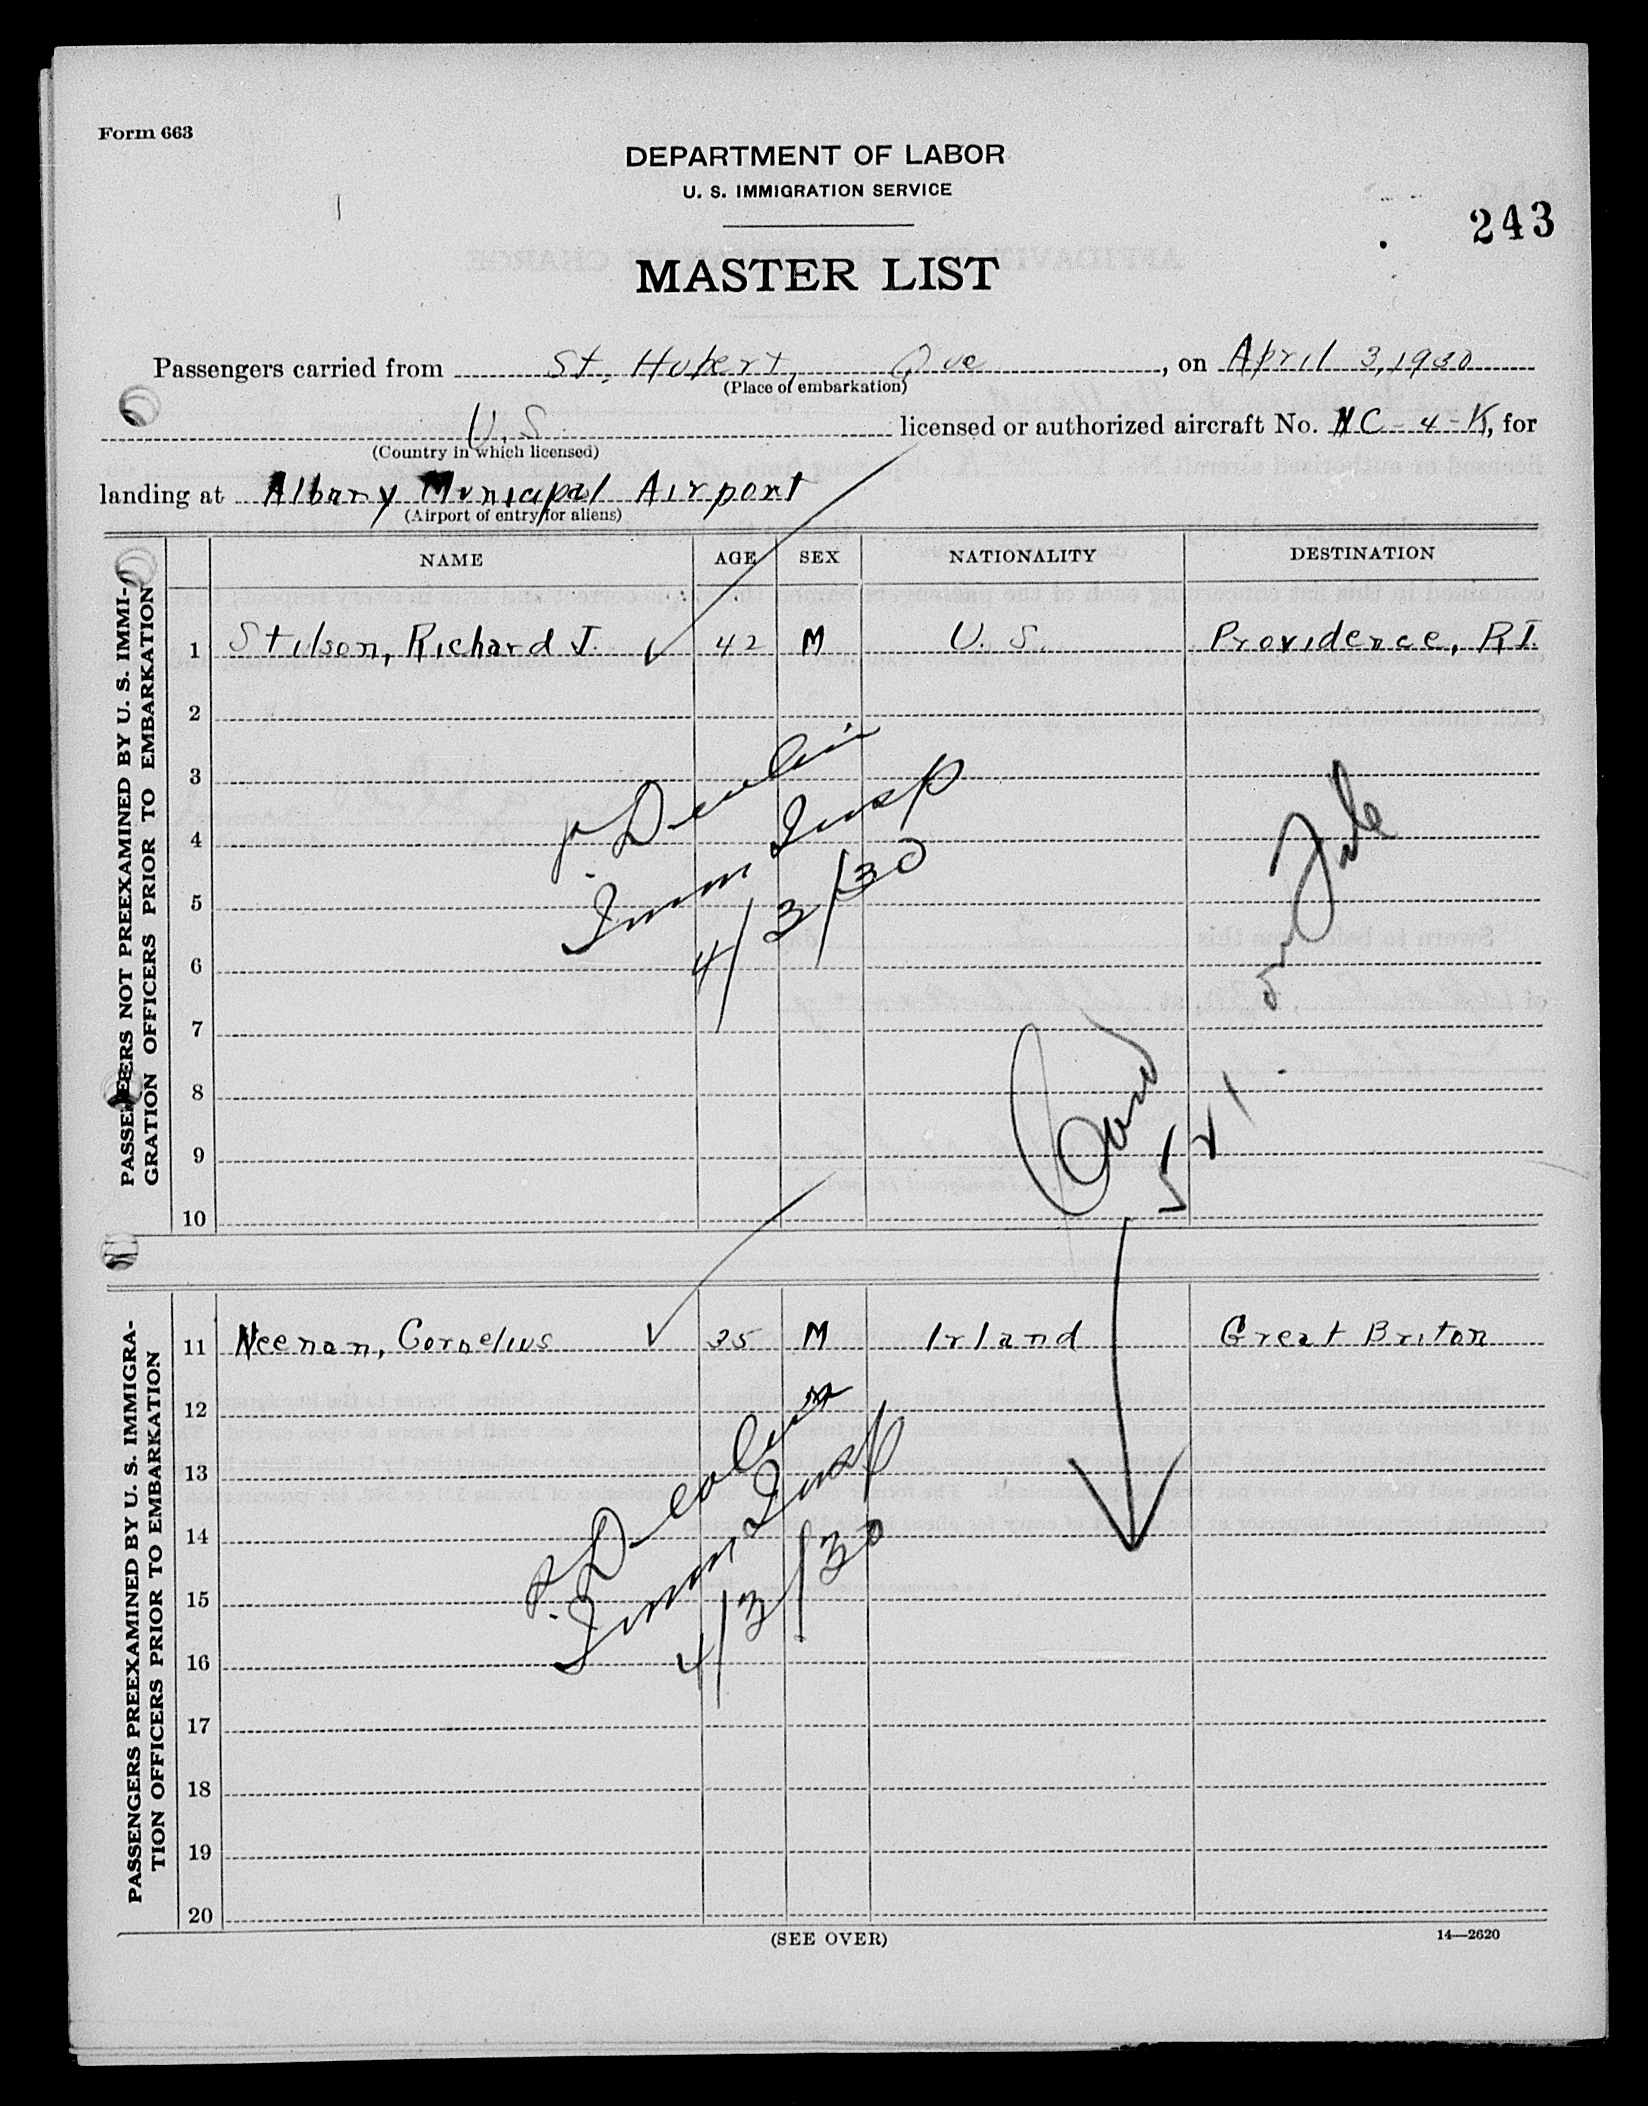 Form 663
DEPARTMENT OF LABOR
U. S. IMMIGRATION SERVICE
243
MASTER LIST
Passengers carried from St. Hubert, Que, on April 3, 1930
(Place of embarkation)
U.S. licensed or authorized aircraft No. NC-4-K, for
(Country in which licensed)
landing at Albany Municipal Airport
(Airport of entry for aliens)
NAME AGE SEX NATIONALITY DESTINATION
PASSENGERS NOT PREEXAMINED BY U. S. IMMI-
GRATION OFFICERS PRIOR TO EMBARKATION
1 Stilson, Richard J. 42 M U. S. Providence, R.I.
2
3
4
5
6
7
8
9
10
P. Devlin
Imm Insp
4/3/30
Card on File
V V I
PASSENGERS PREEXAMINED BY U. S. IMMIGRA-
TION OFFICERS PRIOR TO EMBARKATION
11 Neenan, Cornelius 35 M Irland Great Briton
12
13
14
15
16
17
18
19
20
P. Devlin
Imm Insp
4/3/30
(SEE OVER)
14—2620